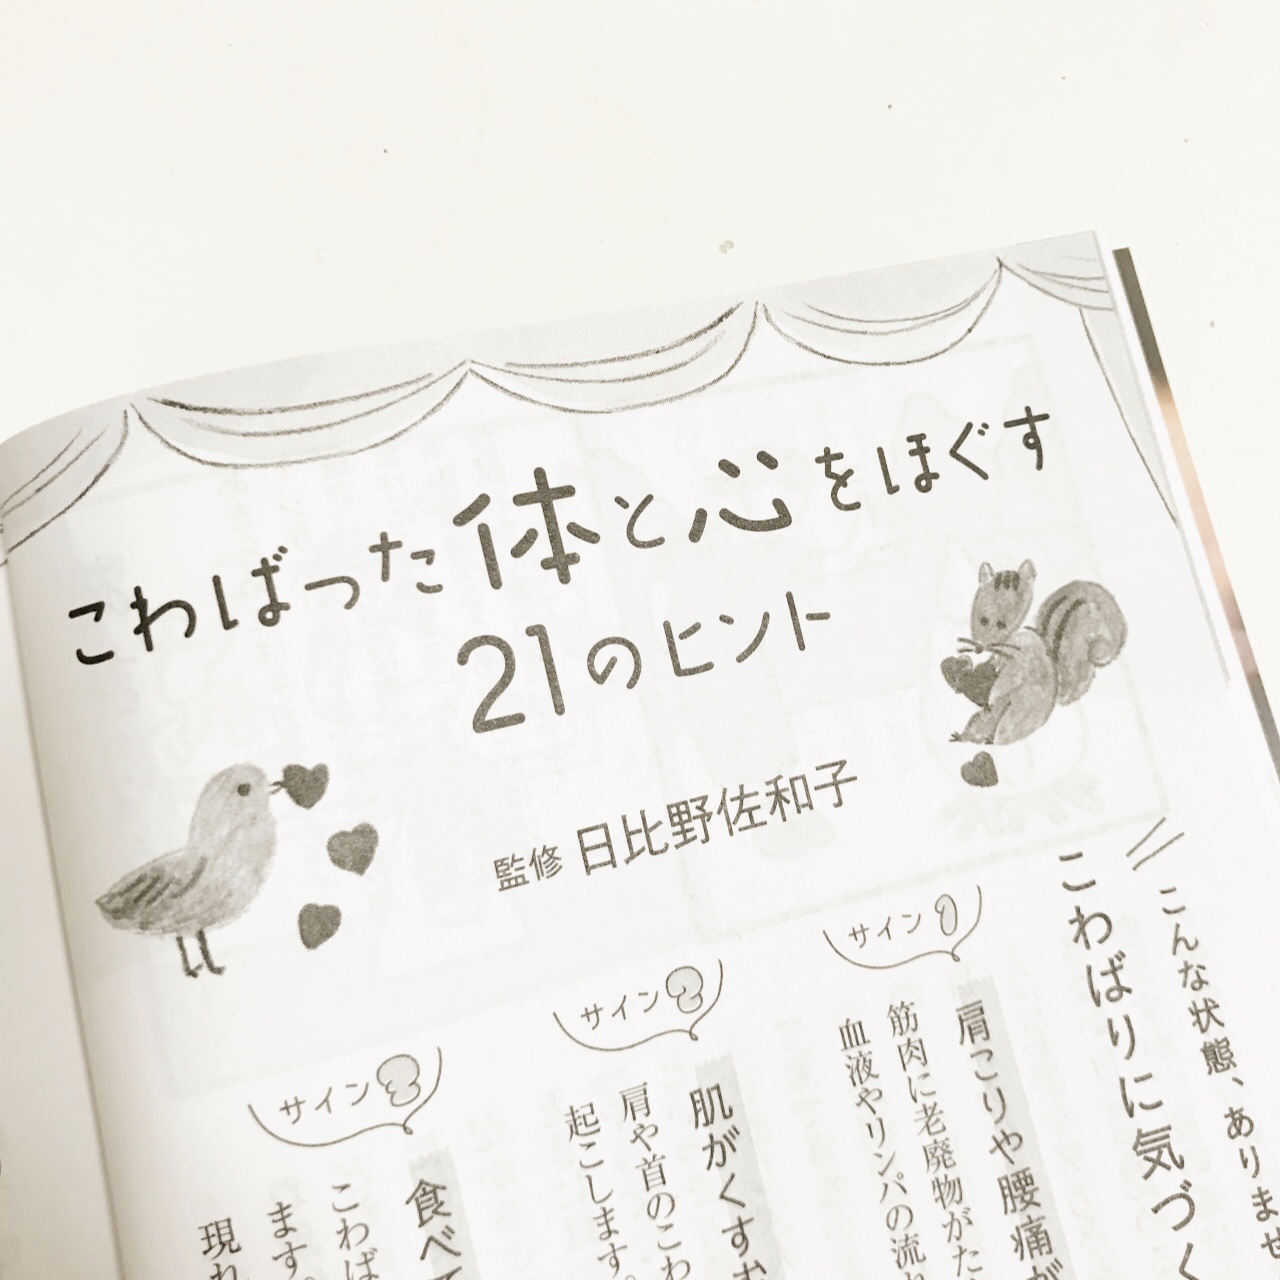 こわばった体と心をほぐす
21のヒント
監修 日比野佐和子
こんな状態、ありませ
こわばりに気づく
サイン1
肩こりや腰痛が
筋肉に老廃物がた
血液やリンパの流れ
サイン2
肌がくすむ
肩や首のこわ
起こします。
サイン3
食べて
こわば
ます。
現れ